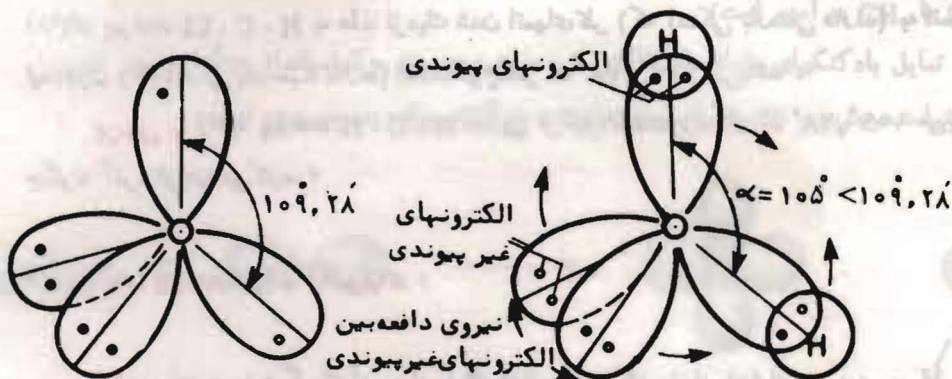 H
الکترونهای پیوندی
۱۰۹°,۲۸′
α=۱۰۵°<۱۰۹°,۲۸′
الکترونهای
غیر پیوندی
نیروی دافعه‌بین
الکترونهای‌غیرپیوندی
H